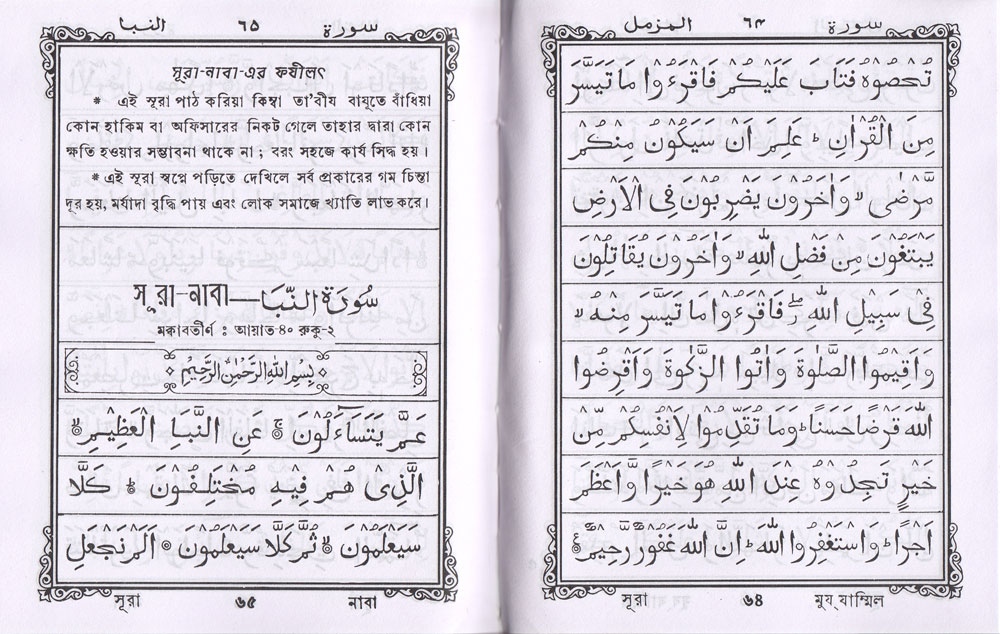 سورة ٦٤ المزمل
تُحْصُوْهُ فَتَابَ عَلَيْكُمْ فَاقْرَءُوْا مَا تَيَسَّرَ
مِنَ الْقُرْاٰنِ ؕ عَلِمَ اَنْ سَيَكُوْنُ مِنْكُمْ
مَّرْضٰى ۙ وَاٰخَرُوْنَ يَضْرِبُوْنَ فِى الْاَرْضِ
يَبْتَغُوْنَ مِنْ فَضْلِ اللّٰهِ ۙ وَاٰخَرُوْنَ يُقَاتِلُوْنَ
فِىْ سَبِيْلِ اللّٰهِ ۖ فَاقْرَءُوْا مَا تَيَسَّرَ مِنْهُ ۙ
وَاَقِيْمُوا الصَّلٰوةَ وَاٰتُوا الزَّكٰوةَ وَاَقْرِضُوا
اللّٰهَ قَرْضًا حَسَنًا ؕ وَمَا تُقَدِّمُوْا لِاَنْفُسِكُمْ مِّنْ
خَيْرٍ تَجِدُوْهُ عِنْدَ اللّٰهِ هُوَ خَيْرًا وَّاَعْظَمَ
اَجْرًا ؕ وَاسْتَغْفِرُوا اللّٰهَ ؕ اِنَّ اللّٰهَ غَفُوْرٌ رَّحِيْمٌ
সূরা ৬৪ মুয্‌যাম্মিল
سورة ٦٥ النبا
সূরা-নাবা-এর ফযীলৎ
* এই সূরা পাঠ করিয়া কিম্বা তা'বীয বাযূতে বাঁধিয়া
কোন হাকিম বা অফিসারের নিকট গেলে তাহার দ্বারা কোন
ক্ষতি হওয়ার সম্ভাবনা থাকে না ; বরং সহজে কার্য সিদ্ধ হয়।
* এই সূরা স্বপ্নে পড়িতে দেখিলে সর্ব প্রকারের গম চিন্তা
দূর হয়, মর্যাদা বৃদ্ধি পায় এবং লোক সমাজে খ্যাতি লাভ করে।
সূরা-নাবা—سُوْرَةُ النَّبَا
মক্কাবতীর্ণ : আয়াত-৪০ রুকু-২
بِسْمِ اللّٰهِ الرَّحْمٰنِ الرَّحِيْمِ
عَمَّ يَتَسَآءَلُوْنَ ۚ عَنِ النَّبَاِ الْعَظِيْمِ ۙ
الَّذِىْ هُمْ فِيْهِ مُخْتَلِفُوْنَ ؕ كَلَّا
سَيَعْلَمُوْنَ ۙ ثُمَّ كَلَّا سَيَعْلَمُوْنَ ۞ اَلَمْ نَجْعَلِ
সূরা ৬৫ নাবা